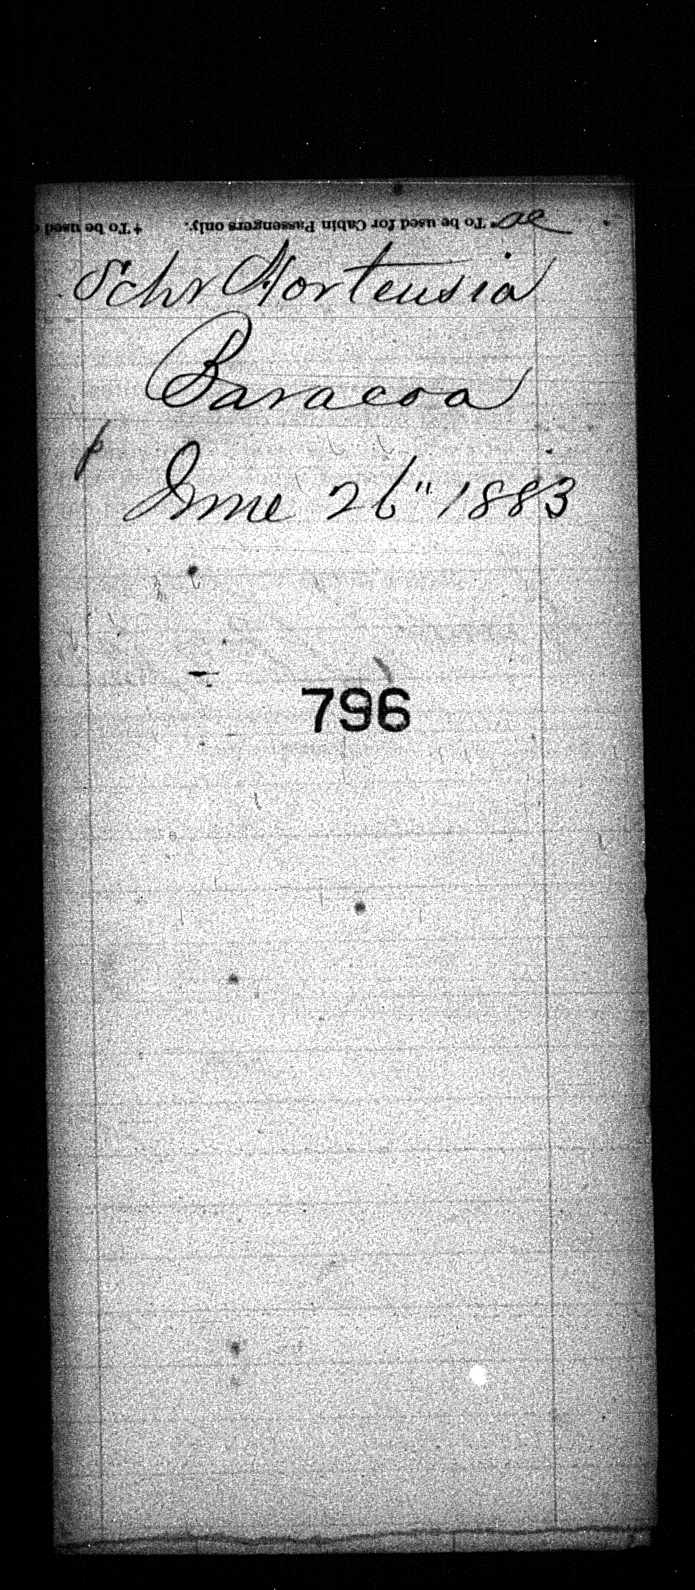 * To be used for Cabin Passengers only. + To be used
Schr Hortensia
Baracoa
June 26" 1883
796